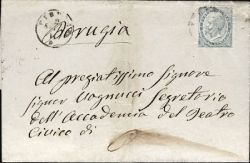 Perugia
Al pregiatissimo Signore
Signor Vagnucci Segretario
dell'Accademia del Teatro
Civico di